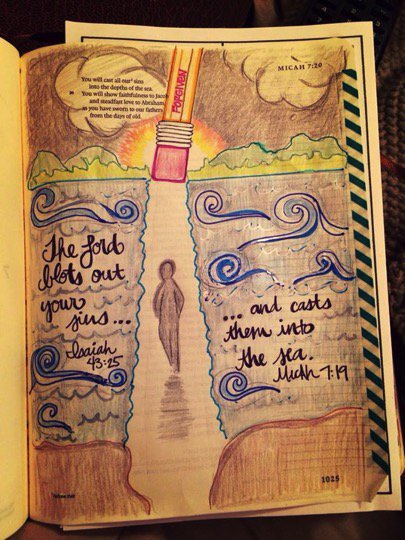 MICAH 7:20
You will cast all our sins
into the depths of the sea.
20 You will show faithfulness to Jacob
and steadfast love to Abraham,
as you have sworn to our fathers
from the days of old.
FORGIVEN
The Lord
blots out
your
sins...
Isaiah
43:25
...and casts
them into
the sea.
Micah 7:19
1025